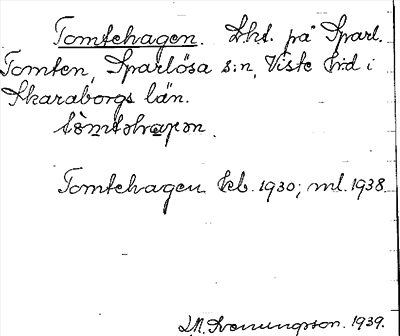 Tomtehagen. Lht. på Sparl.
Tomten, Sparlösa s:n, Viste hd i
Skaraborgs län.
Tomtehagen kb. 1930; ml. 1938
Svenungsson. 1939.